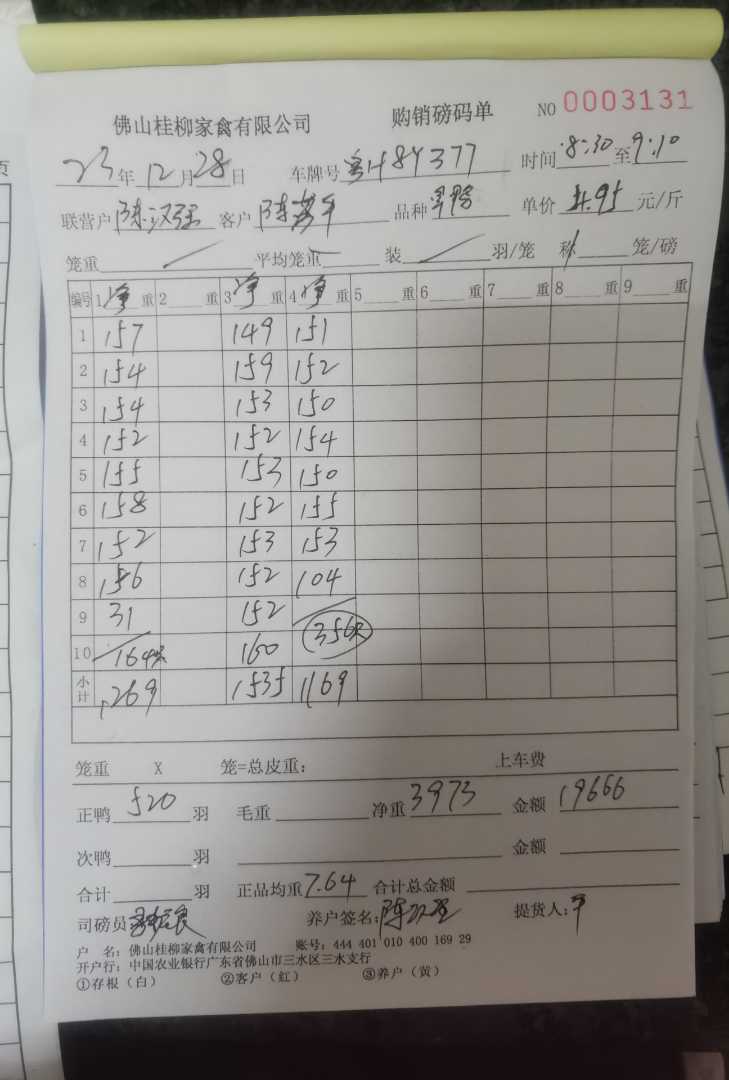 佛山桂柳家禽有限公司 购销磅码单 NO 0003131
23年12月28日 车牌号 粤H84377 时间 8:30 至 9:10
联营户 陈汉强 客户 陈 平 品种 单价 4.95 元/斤
笼重 平均笼重 装 羽/笼 称 笼/磅
编号 1 净 重 2 重 3 净 重 4 净 重 5 重 6 重 7 重 8 重 9 重
1 157 149 151
2 154 159 152
3 154 153 150
4 152 152 154
5 155 153 150
6 158 152 155
7 152 153 153
8 156 152 104
9 31 152
10 164只 160 356只
小计 1269 1535 1169
笼重 X 笼=总皮重: 上车费
正鸭 520 羽 毛重 净重 3973 金额 19666
次鸭 羽 金额
合计 羽 正品均重 7.64 合计总金额
司磅员 养户签名: 陈汉强 提货人: 平
户 名: 佛山桂柳家禽有限公司 账号: 444 401 010 400 169 29
开户行: 中国农业银行广东省佛山市三水区三水支行
①存根(白) ②客户(红) ③养户(黄)